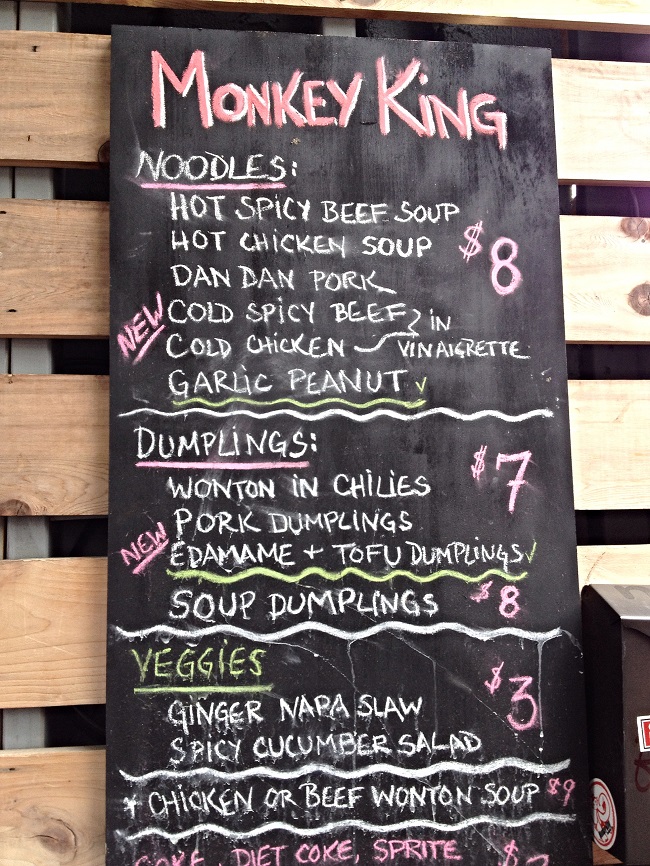 MONKEY KING
NOODLES:
HOT SPICY BEEF SOUP
HOT CHICKEN SOUP $8
DAN DAN PORK
NEW COLD SPICY BEEF } IN
COLD CHICKEN VINAIGRETTE
GARLIC PEANUT ✓
DUMPLINGS:
WONTON IN CHILIES $7
PORK DUMPLINGS
NEW EDAMAME + TOFU DUMPLINGS ✓
SOUP DUMPLINGS $8
VEGGIES
GINGER NAPA SLAW $3
SPICY CUCUMBER SALAD
* CHICKEN OR BEEF WONTON SOUP $9
COKE, DIET COKE, SPRITE